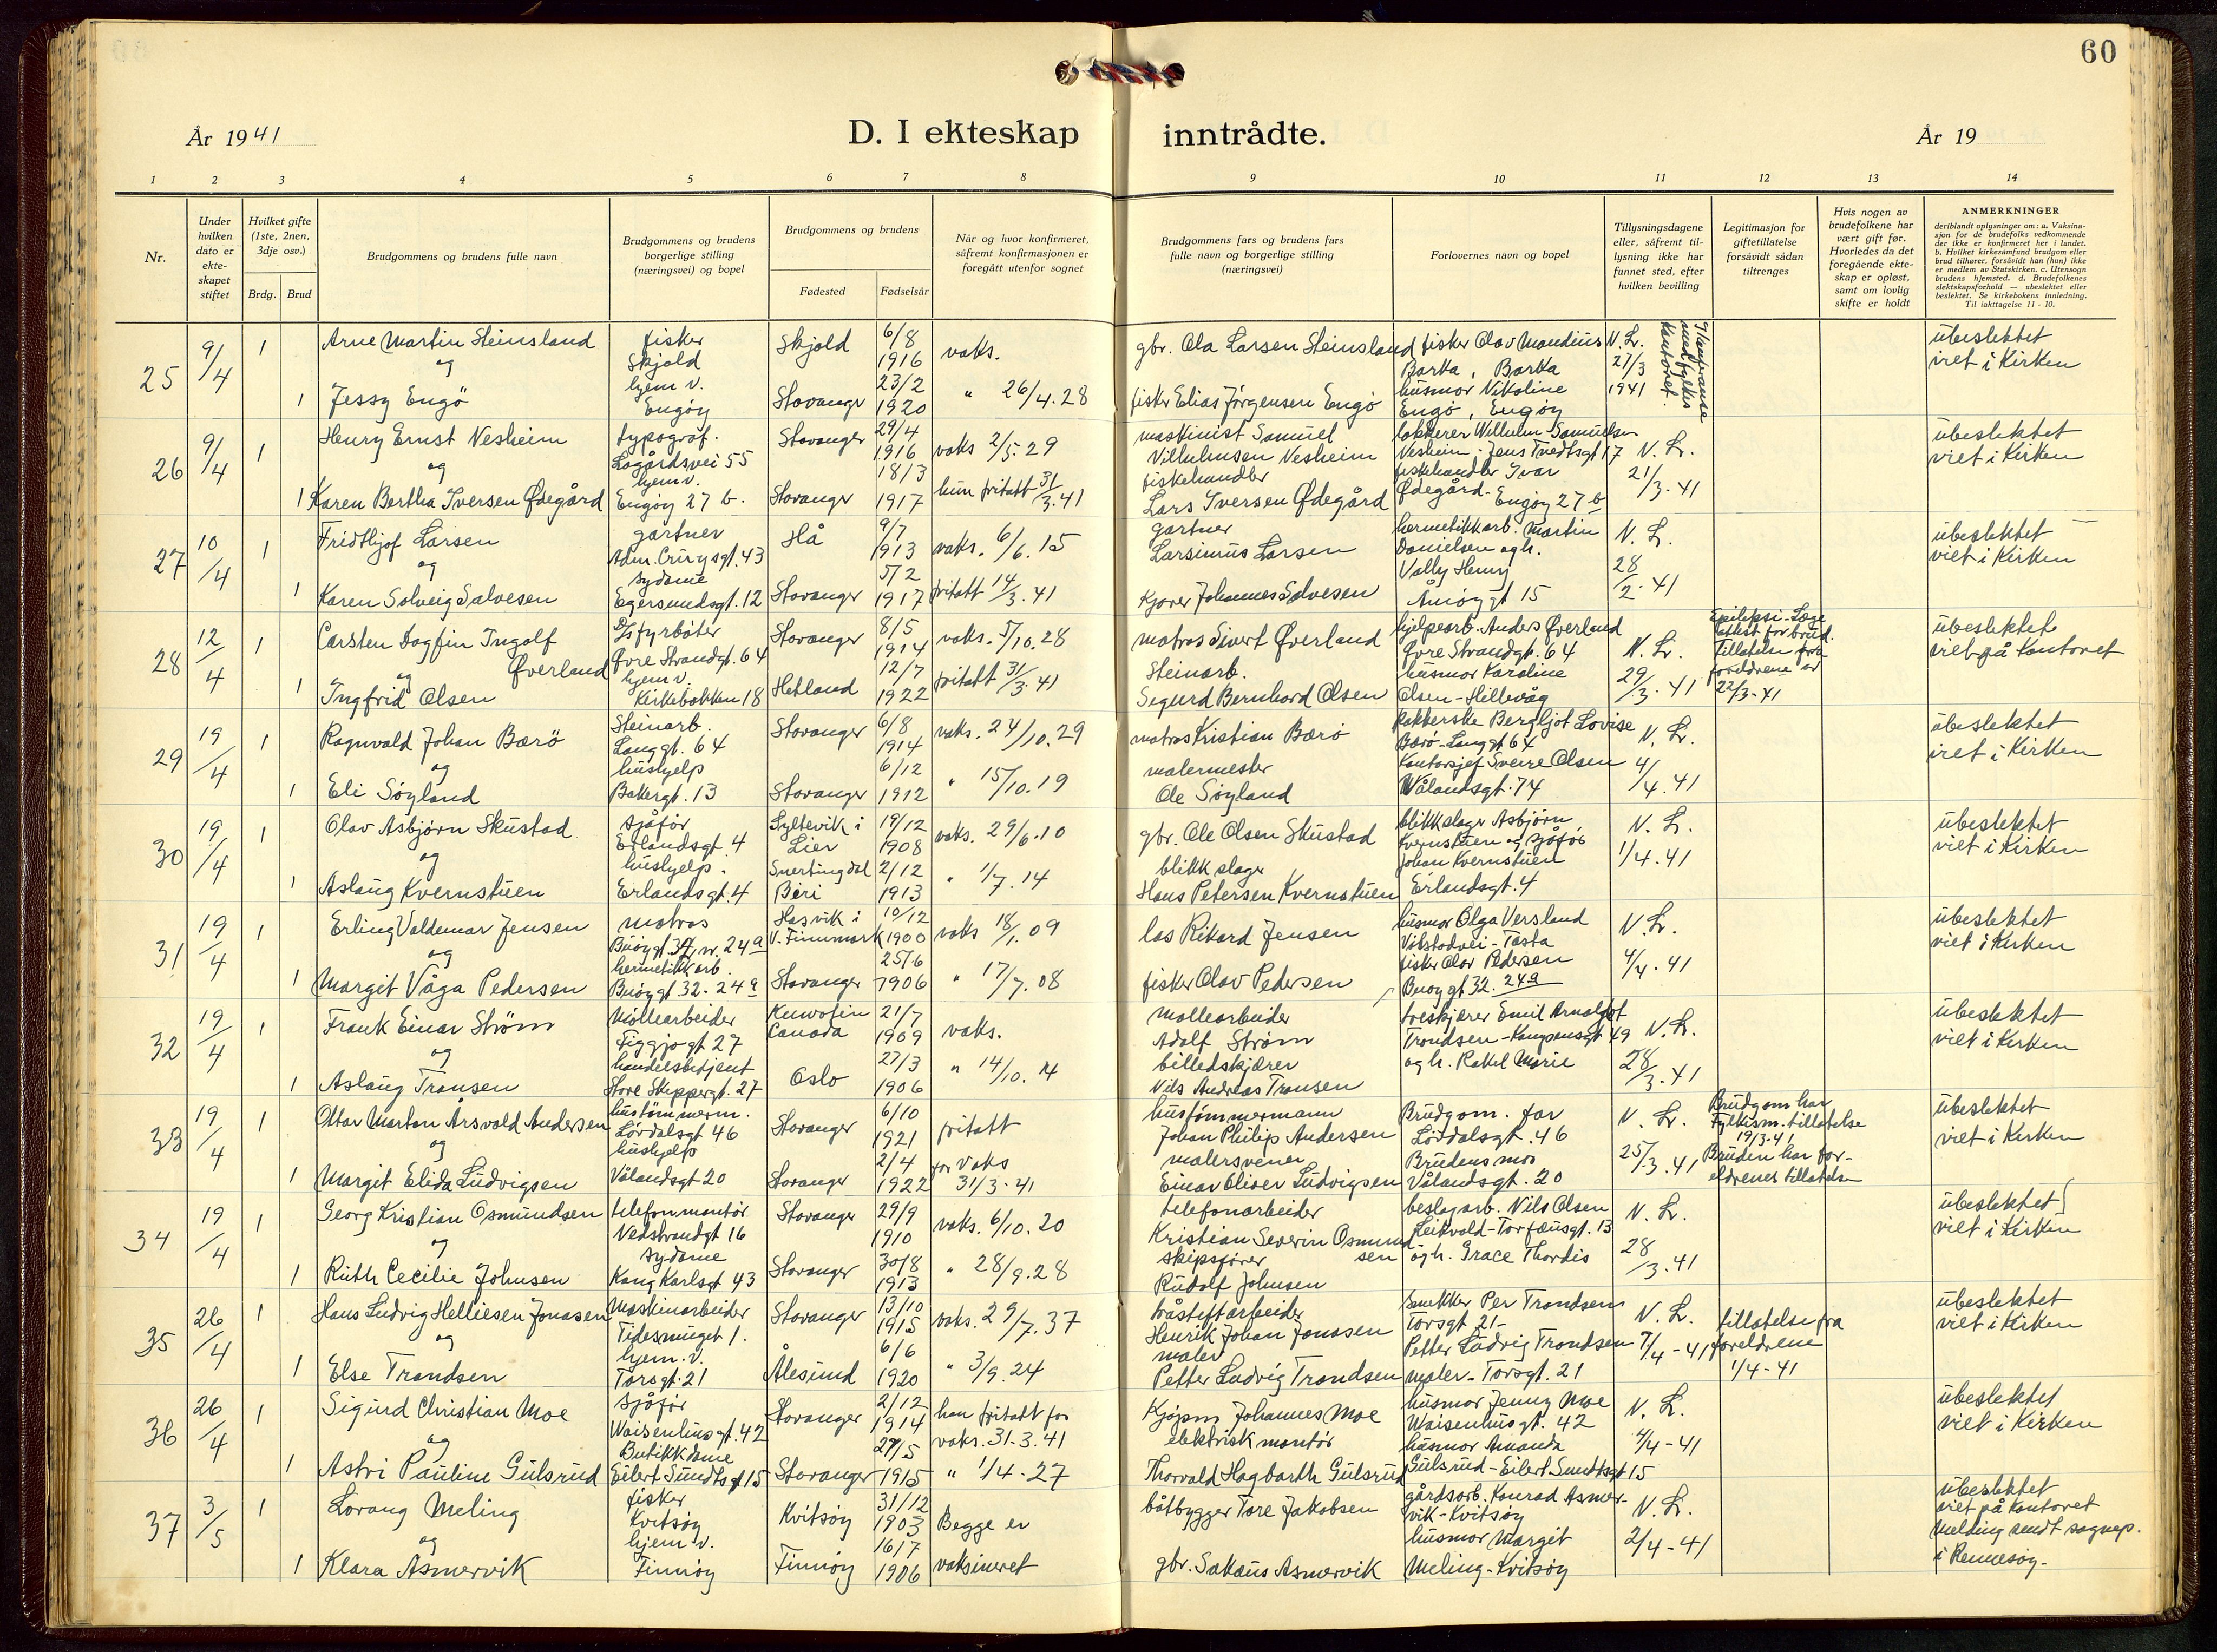 60
År 1941
D. I ekteskap inntrådte.
År 19
1 2 3 4 5 6 7 8 9 10 11 12 13 14
Nr.
Under hvilken dato er ekteskapet stiftet
Hvilket gifte (1ste, 2nen, 3dje osv.)
Brdg. Brud
Brudgommens og brudens fulle navn
Brudgommens og brudens borgerlige stilling (næringsvei) og bopel
Brudgommens og brudens
Fødested Fødselsår
Når og hvor konfirmeret, såfremt konfirmasjonen er foregått utenfor sognet
Brudgommens fars og brudens fars fulle navn og borgerlige stilling (næringsvei)
Forlovernes navn og bopel
Tillysningsdagene eller, såfremt tillysning ikke har funnet sted, efter hvilken bevilling
Legitimasjon for giftetillatelse forsåvidt sådan tiltrenges
Hvis nogen av brudefolkene har vært gift før. Hvorledes da det foregående ekteskap er opløst, samt om lovlig skifte er holdt
ANMERKNINGER
deriblandt oplysninger om: a. Vaksinasjon for de brudefolks vedkommende der ikke er konfirmeret her i landet. b. Hvilket kirkesamfund brudgom eller brud tilhører, forsåvidt han (hun) ikke er medlem av Statskirken. c. Utensogn brudens hjemsted. d. Brudefolkenes slektskapsforhold — ubeslektet eller beslektet. Se kirkebokens innledning. Til iakttagelse 11 - 10.
25 9/4 1 Arne Martin Steinsland fisker Skjold Skjold 6/8 1916 vaks. gbr. Ola Larsen Steinsland fisker Olav Mandius Barka, Barka N. L. 27/3 1941 ubeslektet viet i Kirken
og
1 Jessy Engö hjem v. Engøy Stavanger 23/2 1920 " 26/4.28 fisker Elias Jørgensen Engö husmor Nikoline Engö, Engøy
26 9/4 1 Henry Ernst Nesheim typograf. Lagårdsvei 55 Stavanger 29/4 1916 vaks 2/5.29 maskinist Samuel Vilhelmsen Nesheim Wilhelm Samuelsen Nesheim - Jens Tvedtsgt 17 N. L. 21/3-41 ubeslektet viet i Kirken
og
1 Karen Bertha Iversen Ødegård hjem v. Engøy 27 b. Stavanger 18/3 1917 hun fritatt 31/3.41 fiskehandler Lars Iversen Ødegård fiskehandler Ivar Ødegård - Engøy 27 b
27 10/4 1 Fridthjof Larsen gartner 43 Hå 9/7 1913 vaks. 6/6.15 gartner Larsinius Larsen hermetikkarb. Martin Danielsen og h. N. L. 28/2-41 ubeslektet viet i Kirken
og
1 Karen Solveig Salvesen sydame Egersundsgt. 12 Stavanger 5/2 1917 fritatt 14/3.41 Johannes Salvesen Vally Henry Amøygt 15
28 12/4 1 Carsten Dagfin Ingolf Øverland D/s fyrbøter Øvre Strandgt. 64 Stavanger 8/5 1914 vaks. 5/10.28 matros Sivert Øverland hjelpearb. Anders Øverland Øvre Strandgt. 64 N. L. 29/3-41 Epilepsi-Lægeattest for brud. Tillatelse fra foreldrene av 22/3-41 ubeslektet viet på Kontoret
og
1 Ingfrid Olsen hjem v. Kirkebakken 18 Hetland 12/7 1922 fritatt 31/3.41 Steinarb. Sigurd Bernhard Olsen husmor Karoline Olsen - Hillevåg
29 19/4 1 Ragnvald Johan Barö Steinarb. Langgt. 64 Stavanger 6/8 1914 vaks. 24/10.29 matros Kristian Barö Pakkerske Bergljot Lovise Barö - Langgt 64 N. L. 4/4.41 ubeslektet viet i Kirken
og
1 Eli Söyland hushjelp Bakkergt. 13 Stavanger 6/12 1912 " 15/10.19 malermester Ole Söyland Kontorsjef Sverre Olsen Vålandsgt. 74
30 19/4 1 Olav Asbjørn Skustad sjåfør Erlandsgt. 4 Syltevik i Lier 19/12 1908 vaks. 29/6.10 gbr. Ole Olsen Skustad blikkslager Asbjørn Kvernstuen og sjåfør N. L. 1/4.41 ubeslektet viet i Kirken
og
1 Aslaug Kvernstuen hushjelp. Erlandsgt. 4 Snertingdal Biri 2/12 1913 " 1/7.14 blikkslager Hans Petersen Kvernstuen Johan Kvernstuen Erlandsgt. 4
31 19/4 1 Erling Valdemar Jensen matros Buøygt. 32 nr. 24a Hasvik i V. Finnmark 10/12 1900 vaks 18/1.09 los Rikard Jensen husmor Olga Versland Tasta N. L. 4/4.41 ubeslektet viet i Kirken
og
1 Margit Våga Pedersen hermetikkarb. Buøygt 32. 24a Stavanger 25/6 1906 " 17/7.08 fisker Olav Pedersen fisker Olav Pedersen Buøygt 32. 24a
32 19/4 1 Frank Einar Strøm Möllearbeider Figgjogt 27 Canada 21/7 1909 vaks. möllearbeider Adolf Strøm treskjærer Emil Arnold Trondsen - Kampensgt 49 N. L. 28/3.41 ubeslektet viet i Kirken
og
1 Aslaug Transen handelsbetjent Store Skippergt. 27 Oslo 27/3 1906 " 14/10.14 billedskjærer Nils Andreas Transen og h. Rakel Marie
33 19/4 1 Ottar Morton Årsvold Andersen hustömmerm. Lördalsgt 46 Stavanger 6/10 1921 fritatt hustömmermann Johan Philip Andersen Brudgom. far Lördalsgt. 46 N. L. 25/3.41 Brudgom har Fylkism. tillatelse 19/3-41 Bruden har foreldrenes tillatelse ubeslektet viet i Kirken
og
1 Margit Elida Ludvigsen hushjelp Vålandsgt 20 Stavanger 2/4 1922 for vaks 31/3-41 malersvenn Einar Oliver Ludvigsen Brudens mor Vålandsgt. 20
34 19/4 1 Georg Kristian Osmundsen telefonmontör Nedstrandgt 16 Stavanger 29/9 1910 vaks. 6/10.20 telefonarbeider Kristian Severin Osmundsen beslagarb. Nils Olsen Leikvold - Torfæusgt. 13 N. L. 28/3.41 ubeslektet viet i Kirken
og
1 Ruth Cecilie Johnsen sydame Kong Karlsgt 43 Stavanger 30/8 1913 " 28/9.28 skipsfører Rudolf Johnsen og h. Grace Thordis
35 26/4 1 Hans Ludvig Helliesen Jonassen Maskinarbeider Tidesmuget 1. Stavanger 13/10 1915 vaks. 29/7.37 Henrik Johan Jonassen Snekker Per Trondsen Torsgt 21- N. L. 7/4-41 tillatelse fra foreldrene 1/4-41 ubeslektet viet i Kirken
og
1 Else Trondsen hjem. v. Torsgt. 21 Ålesund 6/6 1920 " 3/9.24 maler Petter Ludvig Trondsen Petter Ludvig Trondsen maler - Torsgt. 21
36 26/4 1 Sigurd Christian Moe sjåfør Waisenhusgt. 42 Stavanger 2/12 1914 han fritatt for vaks. 31-3.41 Kjøpm Johannes Moe husmor Jenny Moe Waisenhusgt. 42 N. L. 4/4-41 ubeslektet viet i Kirken
og
1 Astri Pauline Gulsrud Butikkdame Eilert Sundtsgt 15 Stavanger 27/5 1915 " 1/4.27 elektrisk montör Thorvald Hagbarth Gulsrud husmor Amanda Gulsrud - Eilert Sundtsgt 15
37 3/5 1 Lorang Meling fisker Kvitsøy Kvitsøy 31/12 1903 Begge er vaksineret båtbygger Tore Jakobsen gårdsarb. Konrad Asmervik - Kvitsøy N. L. 2/4-41 ubeslektet viet på Kontoret Melding sendt sognep. i Rennesøy-
og
1 Klara Asmervik hjem v. Finnøy Finnøy 16/7 1906 gbr. Sakaus Asmervik husmor Margit Meling - Kvitsøy